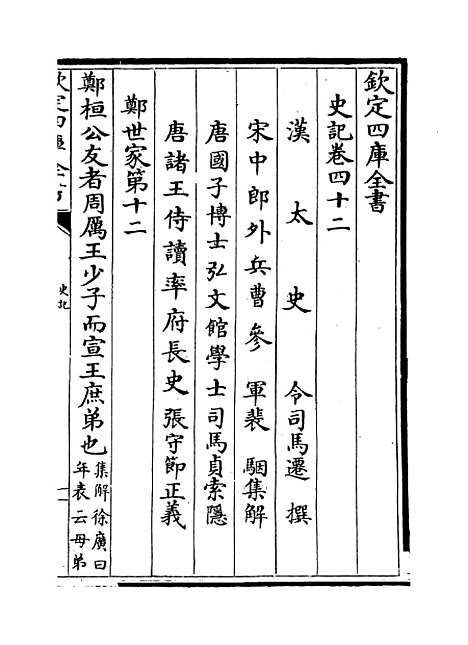 欽定四庫全書
史記卷四十二
漢太史令司馬遷撰
宋中郎外兵曹參軍裴駰集解
唐國子博士弘文館學士司馬貞索隱
唐諸王侍讀率府長史張守節正義
鄭世家第十二
鄭桓公友者周厲王少子而宣王庶弟也
集解徐廣曰
年表云母弟
欽定四庫全書
史記
一